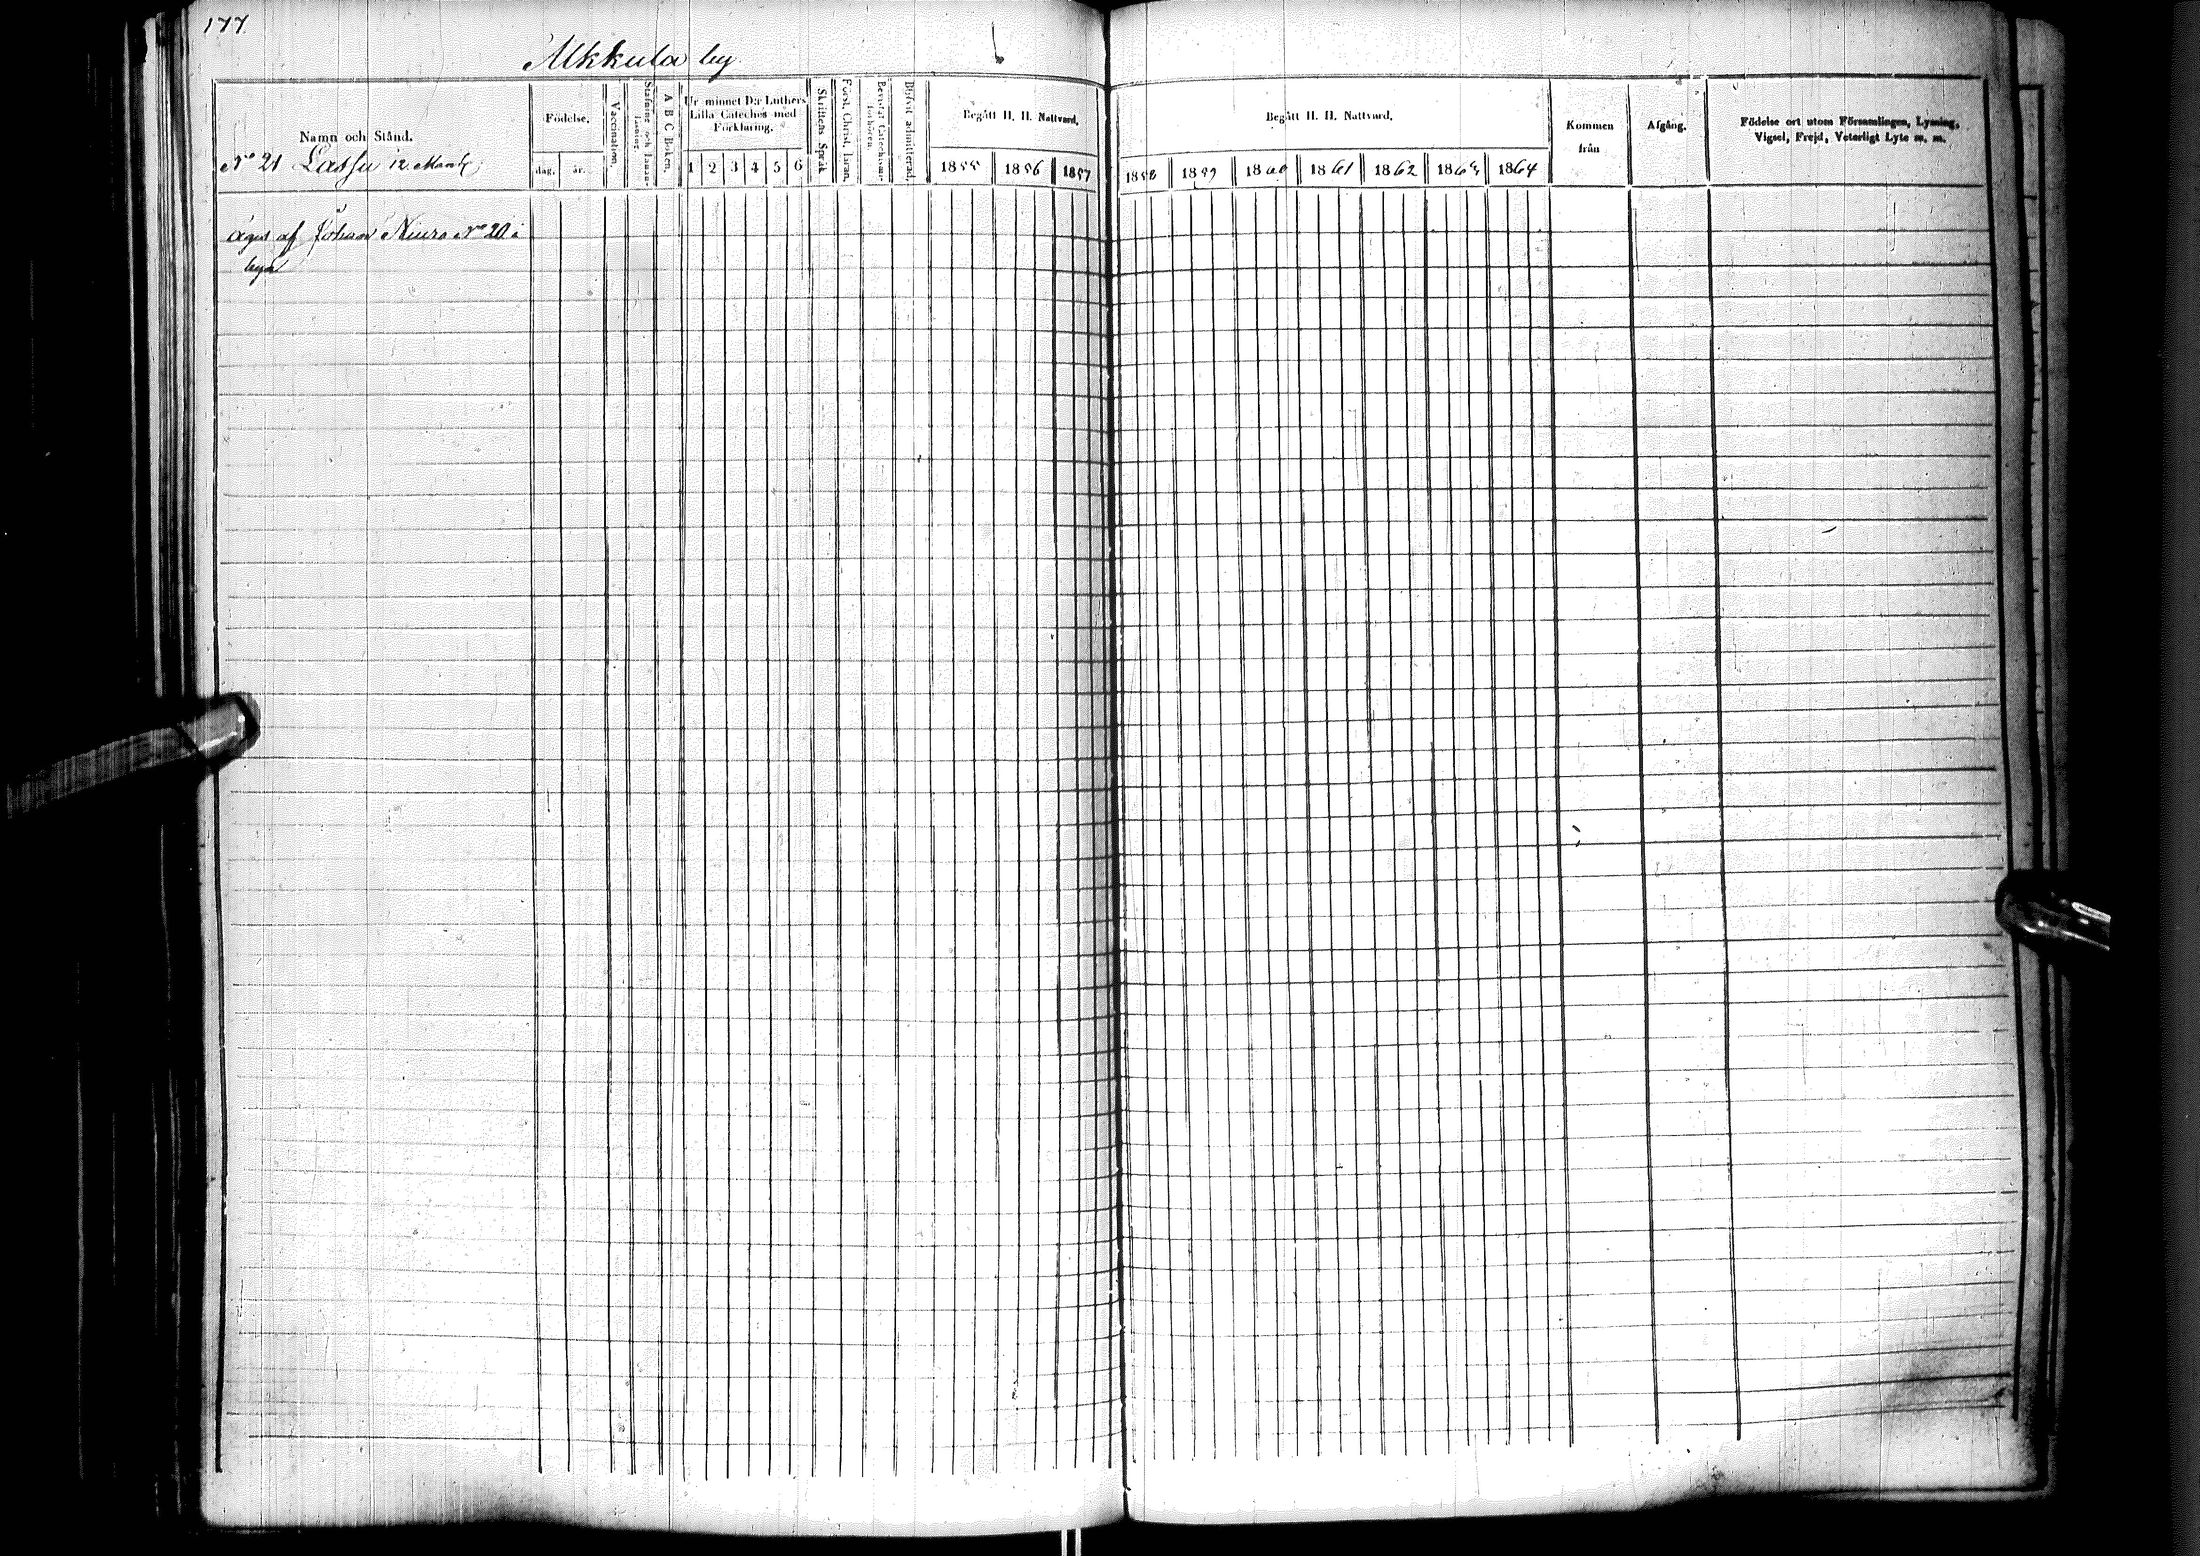 177
Ukkula by
Namn och Stånd.
No 21 Lassu 12. Mantl
Födelse.
dag. år.
Vaccination.
Stafning och Innan-
läsning.
A B C Boken.
Ur minnet D:r Luthers
Lilla Cateches med
Förklaring.
1 2 3 4 5 6
Skriftens Språk
Först. Christ. läran.
Bevistat Catechismi-
förhören.
Blifvit admitterad.
Begått H. H. Nattvard.
1855 1856 1857
Begått H. H. Nattvard.
1858 1859 1860 1861 1862 1863 1864
Kommen
från
Afgång.
Födelse ort utom Församlingen, Lysning,
Vigsel, Frejd, Veterligt Lyte m. m.
äges af Johan No 20 i
byn